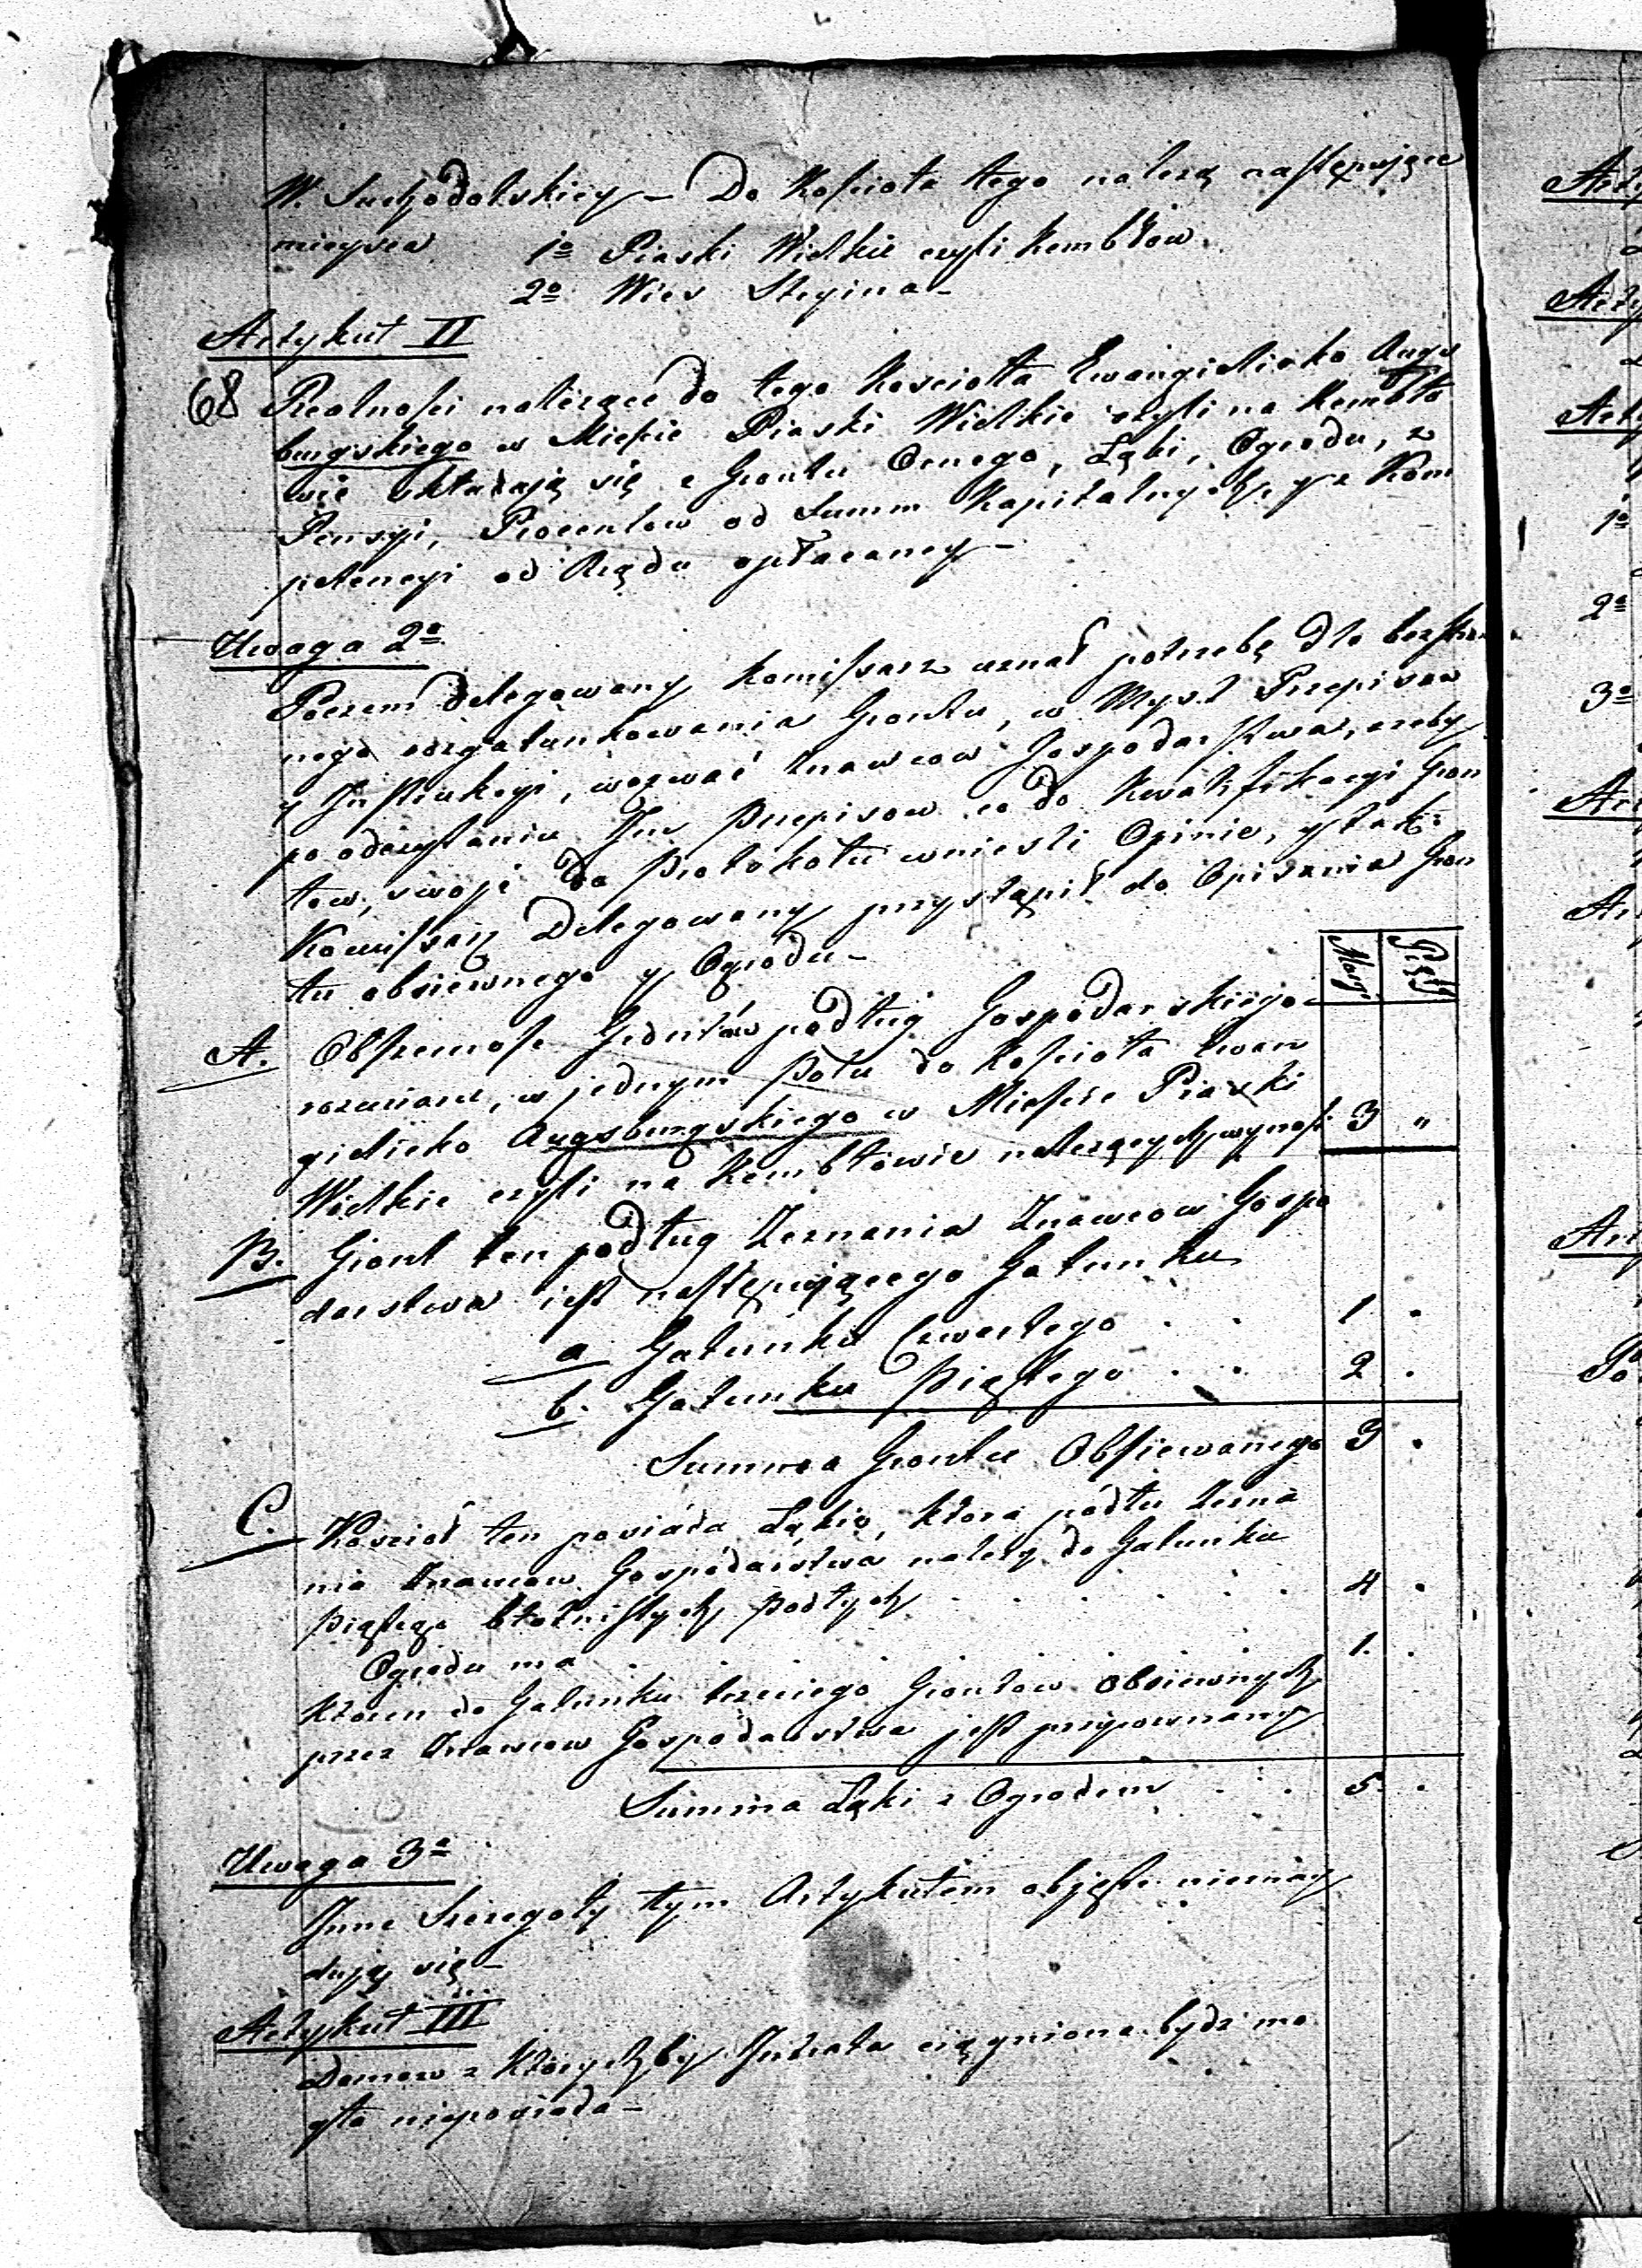 W. Suchodolskiey – Do Kościoła tego należą następujące
mieysca 1o Piaski Wielkie czyli Kembłow
2o Wieś Stryina –
Artykuł II
68 Realności należące do tego Kościoła Ewangielicko Augs
burgskiego w Mieście Piaski Wielkie czyli na Kembło
wie składają się z Gruntu Ornego, Łąki, Ogrodu, z
Pensyi, Procentow od Summ Kapitalnych, y z Kom
petencyi od Rządu opłacaney –
Uwaga 2a
Poczem Delegowany Komissarz uznał potrzebę dla
nego rozgatunkowania Gruntu, w Myśl Przepisow
y Instrukcyi, wezwać znawcow Gospodarstwa, ażeby
po odczytaniu Im Przepisow co do Kwalifikacyi Grun
tow, swoje do Protokołu wnieśli Opinie, y tak
Komissarz Delegowany przystąpił do Opisania Grun
tu obsiewnego y Ogrodu –
Morgi Pręty
A. Obszerność Gruntów podług Gospodarskiego
rozmiaru, w jednym Polu do Kościoła Ewan
gielicko Augsburgskiego w Mieście Piaski
Wielkie czyli na Kembłowie należących wynosi 3 "
B. Grunt ten podług Zeznania Znawcow Gospo
darstwa iest następującego Gatunku
a Gatunku Czwartego . . 1 .
b. Gatunku Piątego . . 2 .
Summa Gruntu Obsiewanego 3 .
C. Kościoł ten posiada Łąkie, ktora podłu Zezna
nia Znawcow Gospodarstwa należy do Gatunku
Piątego błotnistych podłych . . . . . 4 .
Ogrodu ma . . . . . . . 1. .
ktoren do Gatunku trzeciego Gruntow Obsiewnych
przez Znawcow Gospodarstwa jest przyrownany
Summa Łąki z Ogrodem . . 5. .
Uwaga 3a
Inne Szczegoły tym Artykułem objęte nieznay
dują się –
Artykuł III
Domow z ktorychby Intrata ciągniona bydź mo
gła nieposiada –